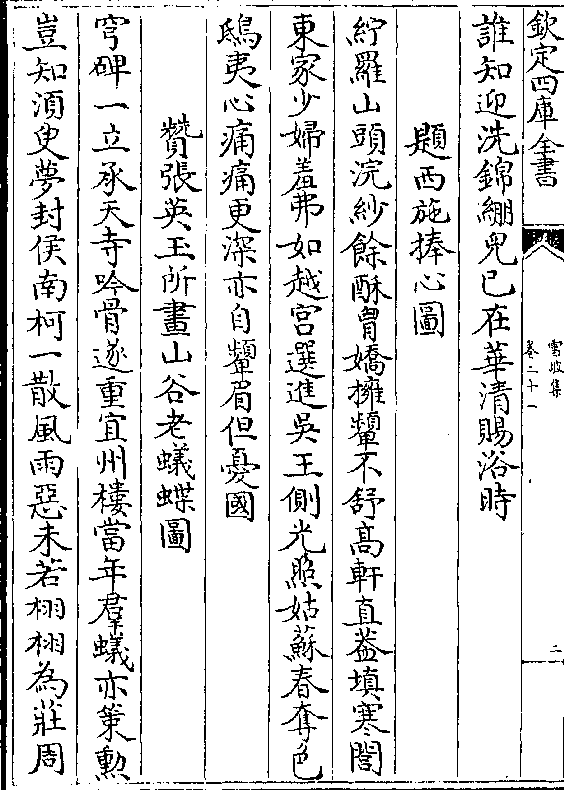 欽定四庫全書
雪坡集
卷二十一
二
誰知迎洗錦繃兒已在華清賜浴時
題西施捧心圖
紵羅山頭浣紗餘酥胷嬌擁顰不舒高軒直葢填寒閭
東家少婦羞弗如越宫選進吳王側光照姑蘇春奪色
鴟夷心痛痛更深亦自顰眉但憂國
贊張英玉所畫山谷老蟻蝶圖
穹碑一立承天寺吟骨遂重宜州樓當年羣蟻亦策勲
豈知須臾夢封侯南柯一散風雨惡未若栩栩為莊周